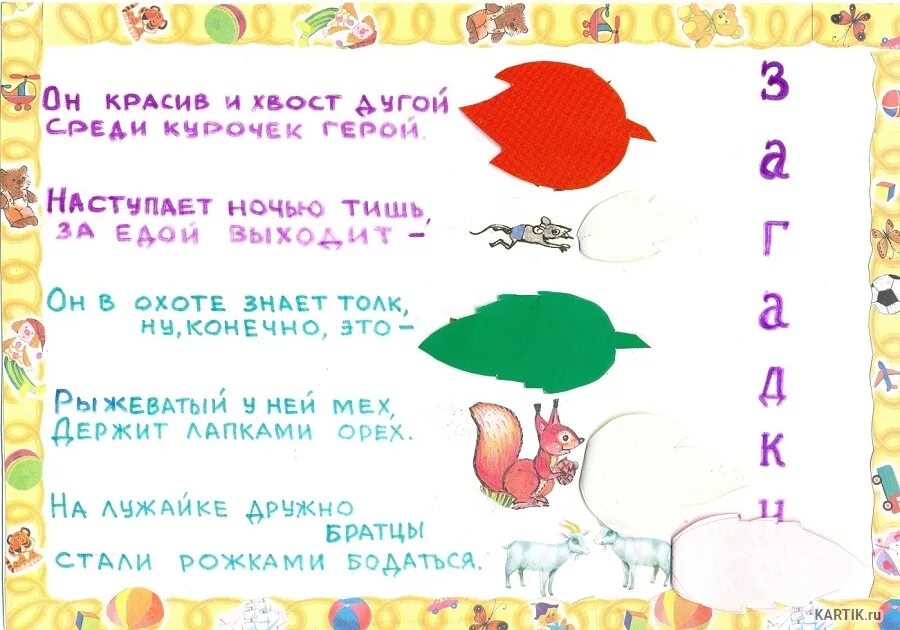 Он красив и хвост дугой
среди курочек герой.
Наступает ночью тишь,
за едой выходит –
Он в охоте знает толк,
ну, конечно, это –
Рыжеватый у ней мех,
Держит лапками орех.
На лужайке дружно
братцы
стали рожками бодаться.
Загадки
KARTIK.ru